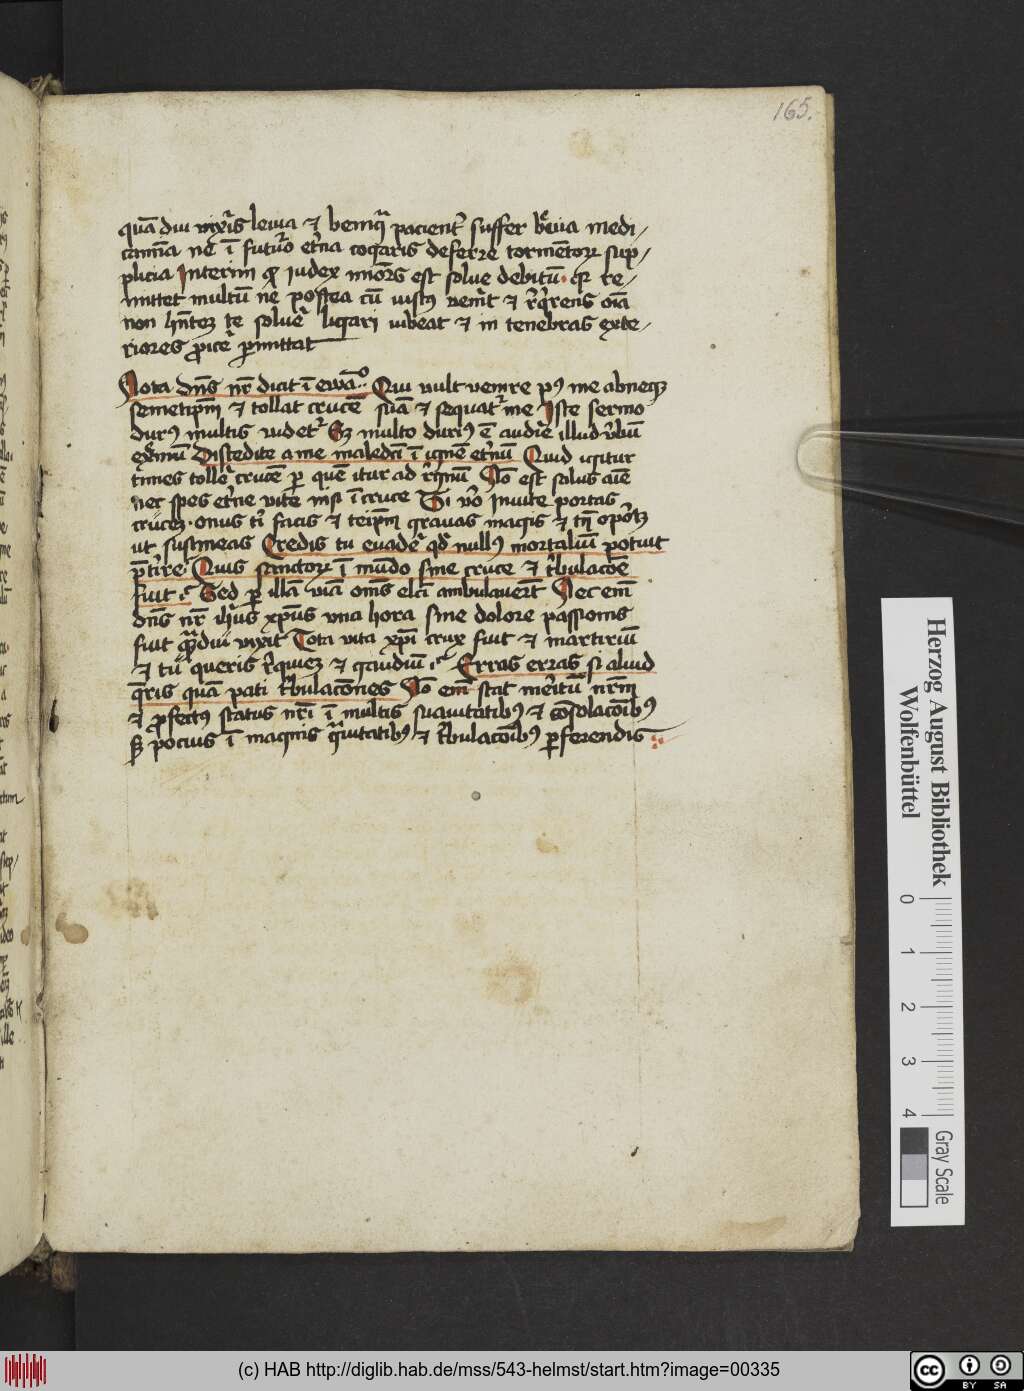 165.
quā diu vixĩs leuia et benigᵃ pacienť suffer bͤuia medi/
camīa nē ī futuͬo etͨna cogaris deferre tormētorum sup/
plicia Interim quod iudex miōrs est solue debitū quia re
mittet multū nē postea cū iustus venͥt et rͤqͥrens oīa
non hn̄tem te soluͤ ligari iubeat et in tenebras exte/
riores ꝓicͤ ꝑmittat
Nota dn̄s nr̄ dicit ī ewāᵒ Qui vult venire pꝰ me abneget
semetip̄m et tollat crucē suā et sequatͬ me Iste sermo
durꝰ multis videtͬ Sꝫ multo duriꝰ ē audiͤ illud vͤbū
ext̄mū Discedite a me maledc̄i ī ignē etͤnū Quid igitur
times tollͤ crucē ꝑ quē itur ad rͤgnū Nō est salus aīe
nec spes etͤne vite nisi ī cruce Si vͤo Inuite portas
crucem onus tͥ facis et teip̄m grauas magis et tn̄ oportꝫ
ut sustineas Credis tu euadͤ qd nullꝰ mortaliū potuit
p̄tͥre Quis sanctorum ī mūdo sine cruce et tͥbulacōe
fuit etc̄ Sed ꝑ illā viā om̄s elc̄i ambulauerūt Nec em̄
dn̄s nr̄ ih̄us xp̄us vna hora sine dolore passionis
fuit qᵃdiu vixit Tota vita xp̄i crux fuit et martiriū
et tu queris rͤquiem et gaudiū etc̄ Erras erras si aliud
qͤris quā pati tͥbulacōnes Nō em̄ stat meͥtū nr̄m
et ꝓfectꝰ status nr̄i ī multis suauitatibꝰ et cōsolacōibꝰ
sꝫ pocius ī magnis gᵃuitatibꝰ et tͥbulacōibꝰ ꝑferendis
Herzog August Bibliothek
Wolfenbüttel
0 1 2 3 4
Gray Scale
(c) HAB http://diglib.hab.de/mss/543-helmst/start.htm?image=00335
cc BY SA